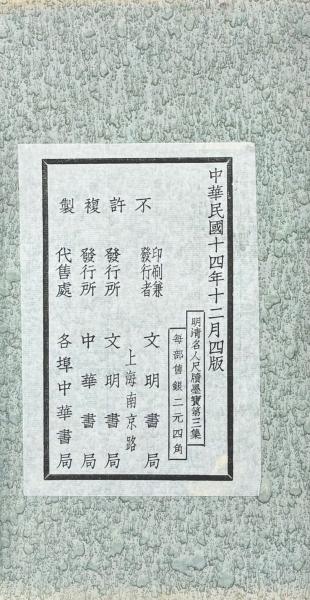 中華民國十四年十二月四版
明清名人尺牘墨寶第三集
每部售銀二元四角
不許複製
印刷兼發行者
文明書局
上海南京路
發行所
文明書局
發行所
中華書局
代售處
各埠中華書局